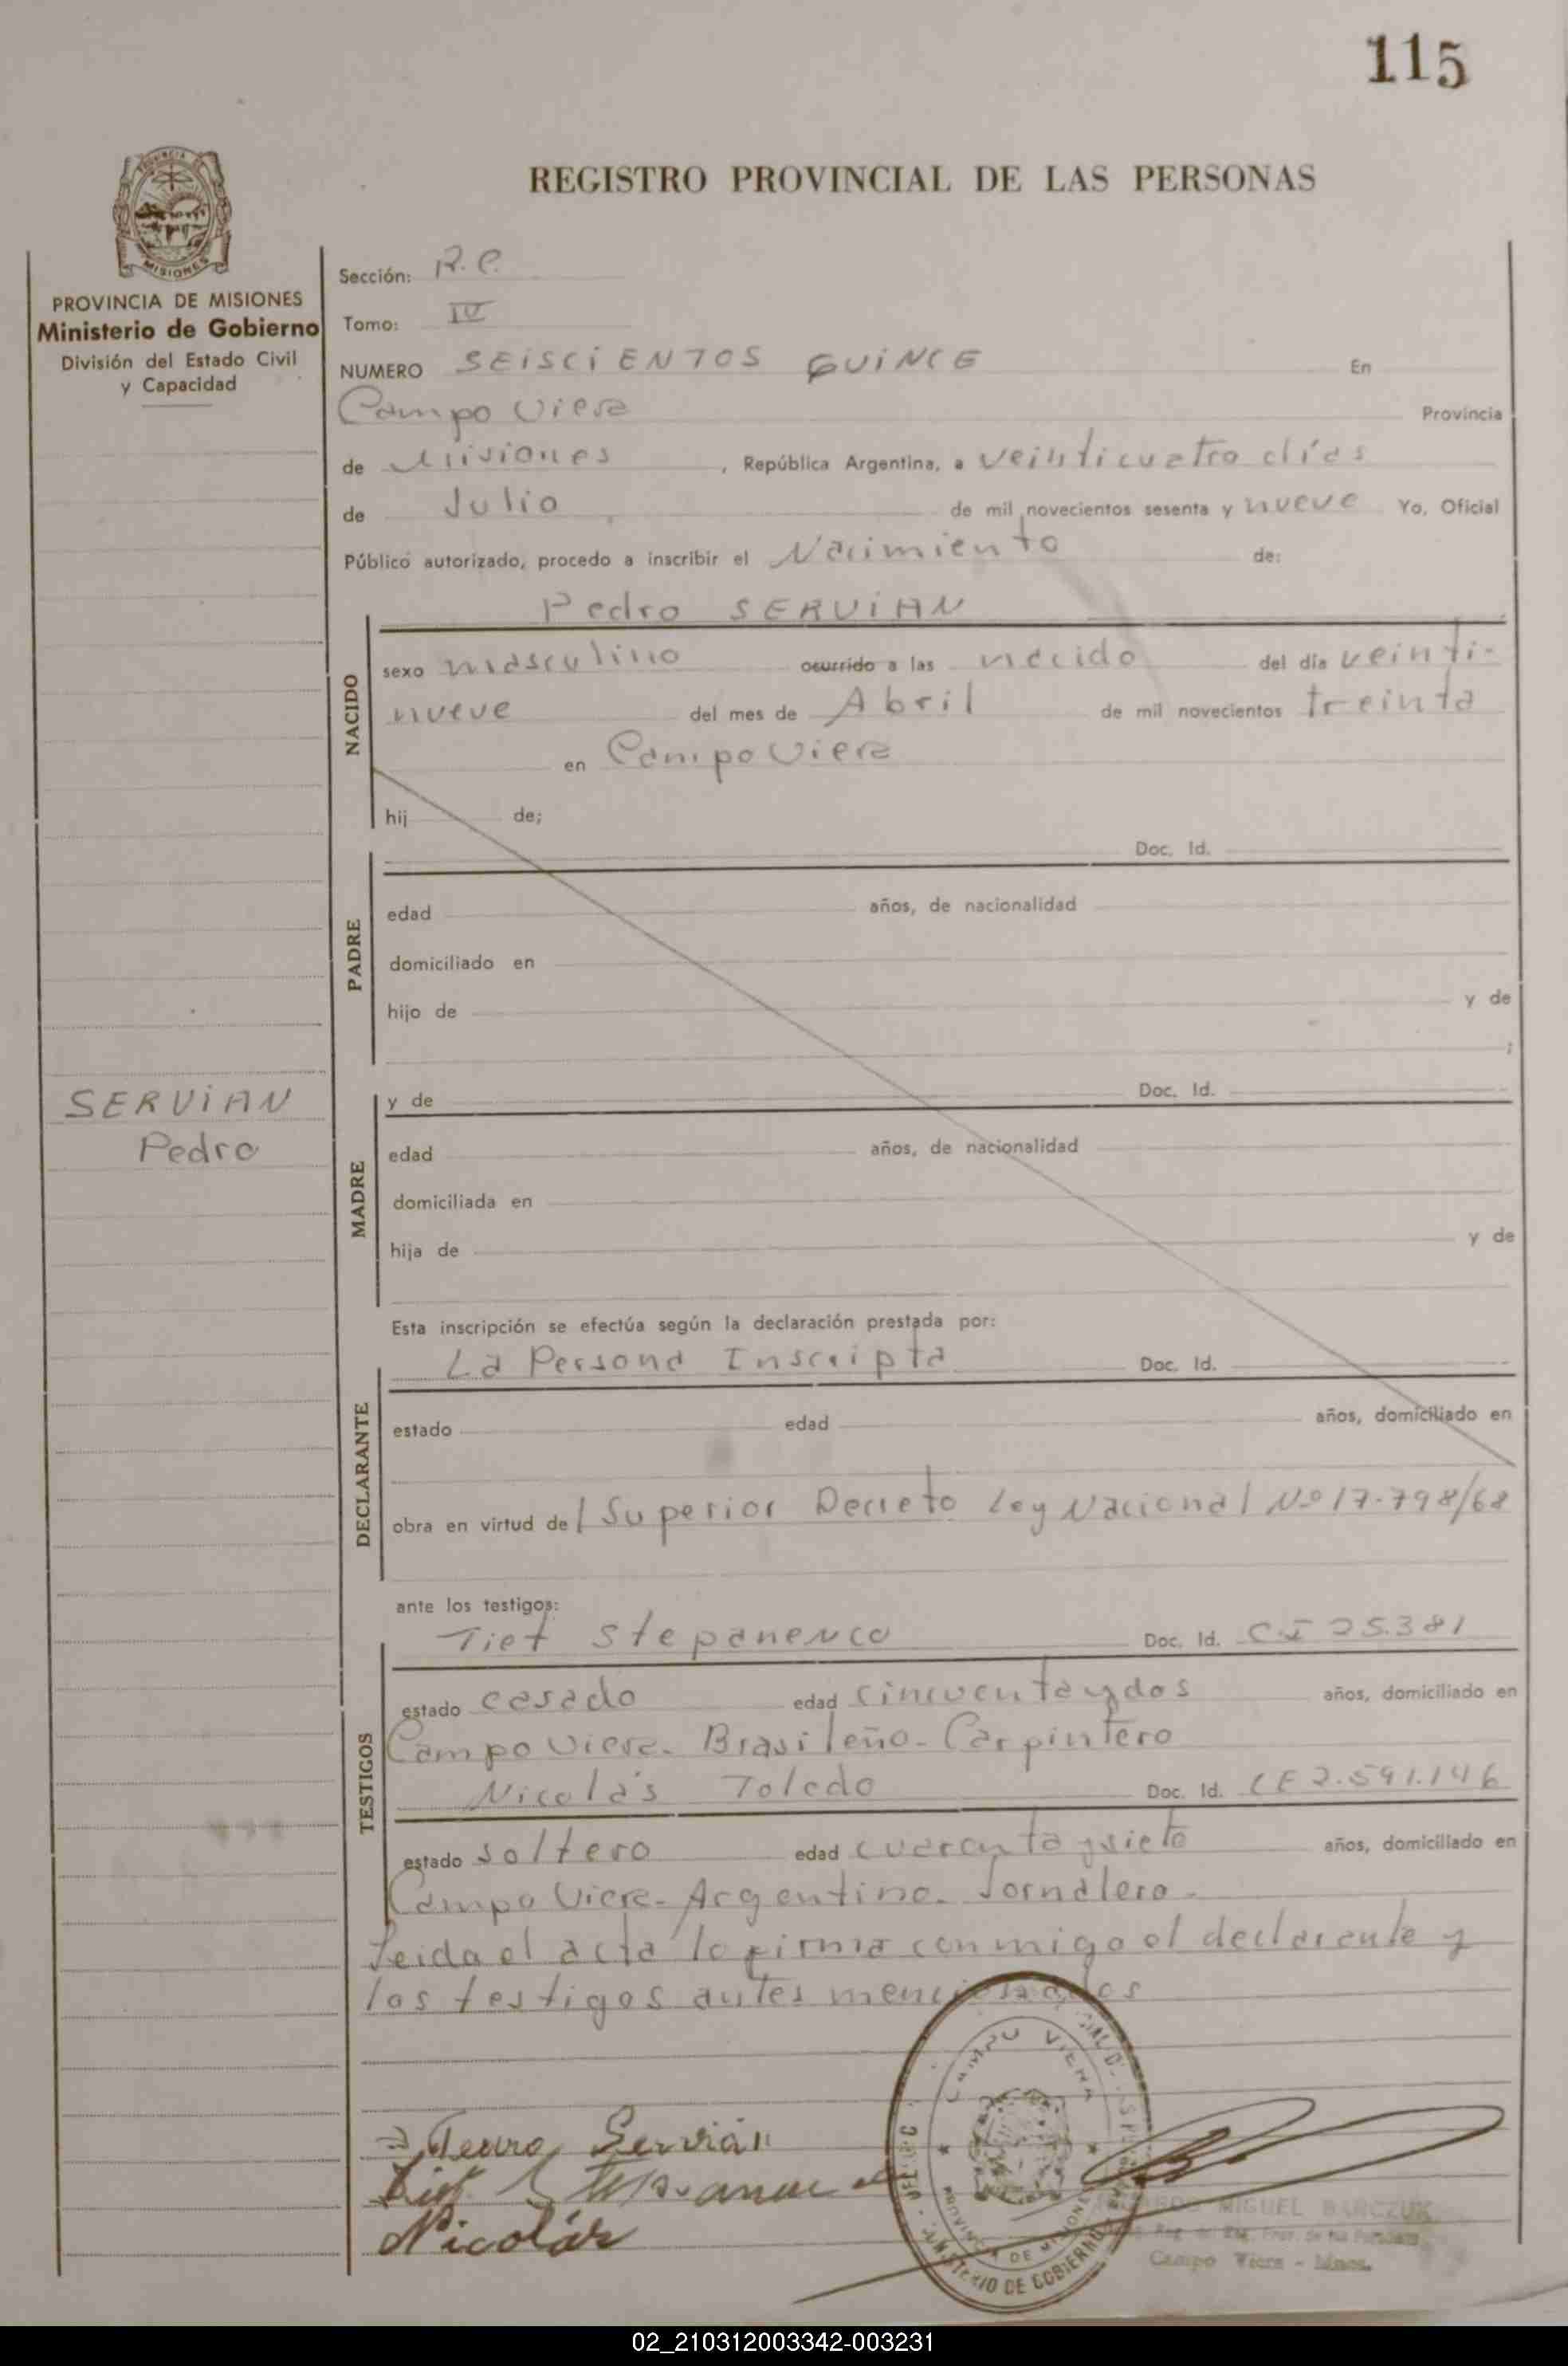 115
REGISTRO PROVINCIAL DE LAS PERSONAS
PROVINCIA DE
MISIONES
PROVINCIA DE MISIONES
Ministerio de Gobierno
División del Estado Civil
y Capacidad
Sección: R.C.
Tomo: IV
NUMERO SEISCIENTOS QUINCE En
Campo Viera Provincia
de Misiones, República Argentina, a veinticuatro días
de Julio de mil novecientos sesenta y nueve Yo, Oficial
Público autorizado, procedo a inscribir el Nacimiento de:
Pedro SERVIAN
NACIDO
sexo masculino ocurrido a las nacido del día veinti-
nueve del mes de Abril de mil novecientos treinta
en Campo Viera
hij de;
PADRE
Doc. Id.
edad años, de nacionalidad
domiciliado en
hijo de y de
;
SERVIAN
Pedro
MADRE
y de Doc. Id.
edad años, de nacionalidad
domiciliada en
hija de y de
Esta inscripción se efectúa según la declaración prestada por:
DECLARANTE
La Persona Inscripta Doc. Id.
estado edad años, domiciliado en
obra en virtud del Superior Decreto Ley Nacional Nº 17.798/68
ante los testigos:
TESTIGOS
Tiet Stepanenco Doc. Id. CI 25.381
estado casado edad cincuentaydos años, domiciliado en
Campo Viera. Brasileño. Carpintero
Nicolás Toledo Doc. Id. CE 2.591.146
estado soltero edad cuarentaysiete años, domiciliado en
Campo Viera. Argentino. Jornalero.
Leida el acta la firma conmigo el declarante y
los testigos antes mencionados
Servián
Nicolás
CAMPO VIERA
PROVINCIA DE MISIONES
MINISTERIO DE GOBIERNO
MIGUEL BARCZUK
Campo Viera - Mnes.
02_210312003342-003231